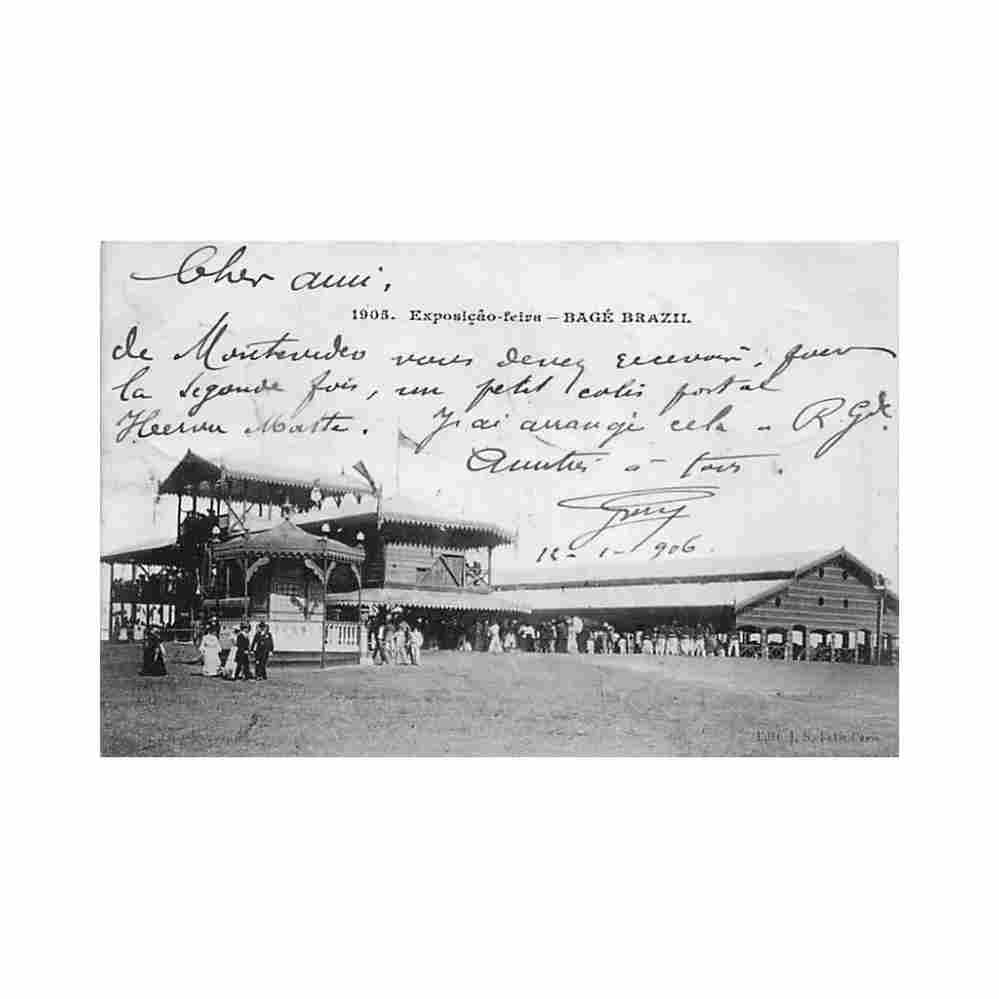 Cher ami,
1905. Exposição-feira — BAGÉ BRAZIL
de Montevideo vous devez recevoir, pour
la segonde fois, un petit colis postal
Matte. J'ai arrangé cela a R. Gde.
à tois.
12-1-906.
Edit. J. S.